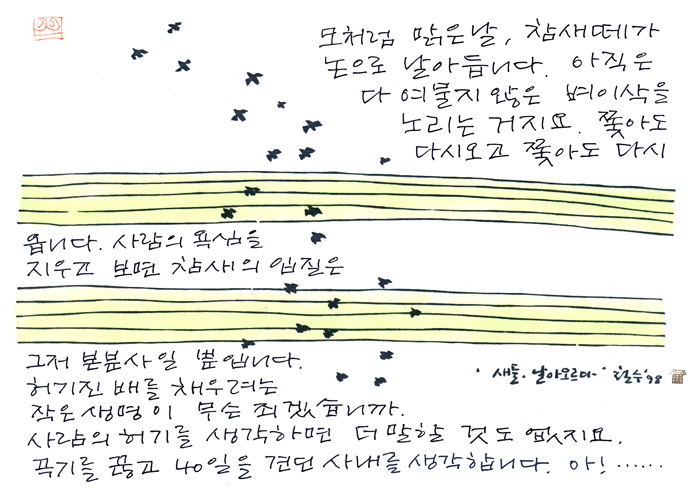 모처럼 맑은날, 참새떼가
논으로 날아듭니다. 아직은
다 여물지 않은 벼이삭을
노리는 거지요. 쫓아도
다시오고 쫓아도 다시
옵니다. 사람의 욕심을
지우고 보면 참새의 입질은
그저 본분사일 뿐입니다.
허기진 배를 채우려는
작은 생명이 무슨 죄겠습니까.
사람의 허기를 생각하면 더 말할 것도 없지요.
곡기를 끊고 40일을 견딘 사내를 생각합니다. 아!······
·새들·날아오르다-· 철수'98